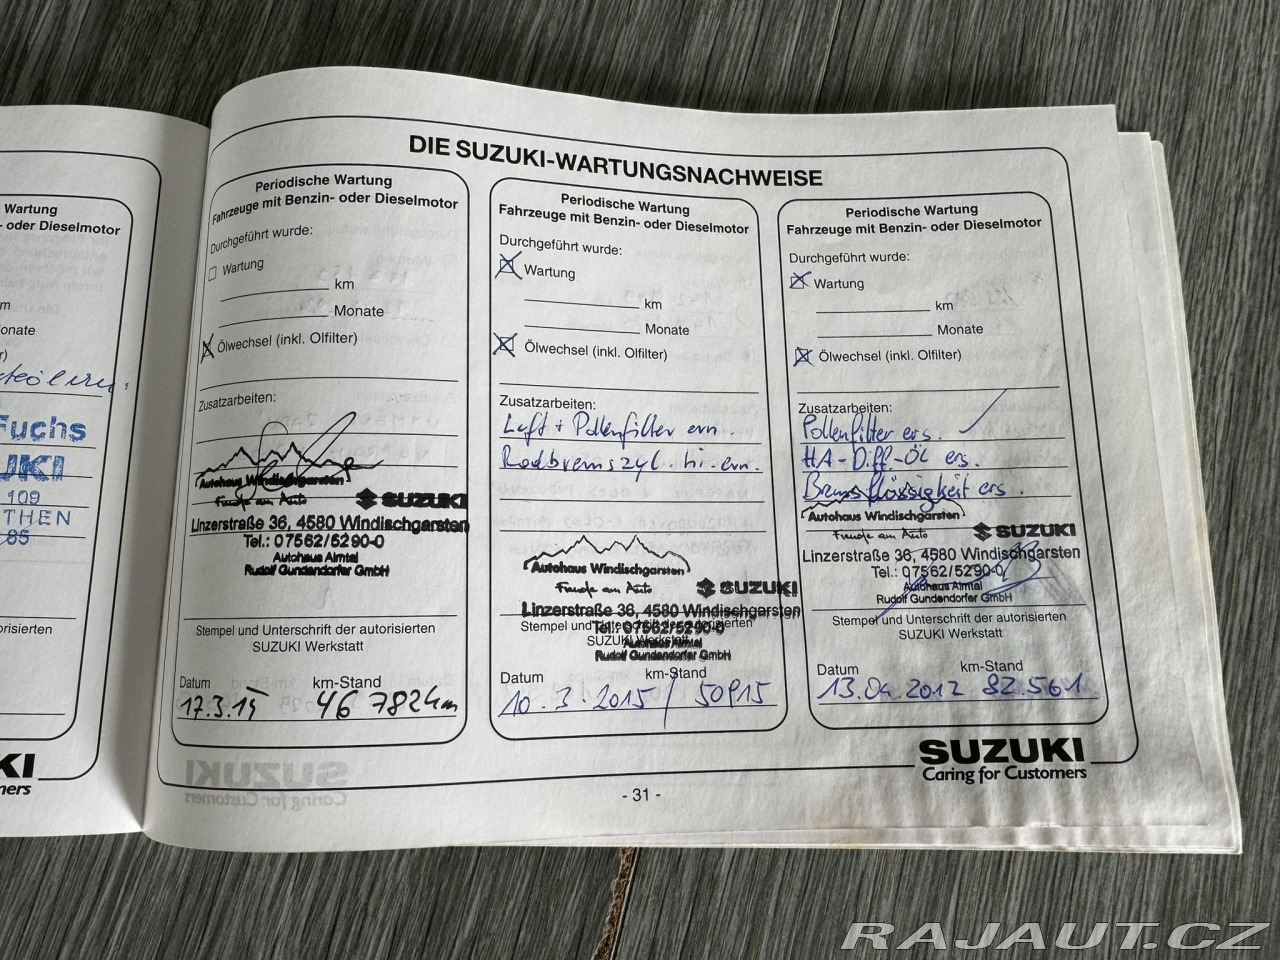 Wartung
- oder Dieselmotor
m
onate
r)
Fuchs
UKI
109
THEN
85
orisierten
KI
mers
DIE SUZUKI-WARTUNGSNACHWEISE
Periodische Wartung
Fahrzeuge mit Benzin- oder Dieselmotor
Durchgeführt wurde:
Wartung
km
Monate
Ölwechsel (inkl. Ölfilter)
Zusatzarbeiten:
Autohaus Windischgarsten
Freude am Auto
SUZUKI
Linzerstraße 36, 4580 Windischgarsten
Tel.: 07562/5290-0
Autohaus Almtal
Rudolf Gundendorfer GmbH
Stempel und Unterschrift der autorisierten
SUZUKI Werkstatt
Datum km-Stand
17.3.15 46 782km
Periodische Wartung
Fahrzeuge mit Benzin- oder Dieselmotor
Durchgeführt wurde:
Wartung
km
Monate
Ölwechsel (inkl. Ölfilter)
Zusatzarbeiten:
Luft + Pollenfilter ern.
Radbremszyl. hi. ern.
Autohaus Windischgarsten
Freude am Auto
SUZUKI
Linzerstraße 36, 4580 Windischgarsten
Stempel und Unterschrift der autorisierten
Tel.: 07562/5290-0
SUZUKI Werkstatt
Autohaus Almtal
Rudolf Gundendorfer GmbH
Datum km-Stand
10.3.2015 / 50915
Periodische Wartung
Fahrzeuge mit Benzin- oder Dieselmotor
Durchgeführt wurde:
Wartung
km
Monate
Ölwechsel (inkl. Ölfilter)
Zusatzarbeiten:
Pollenfilter ers.
HA-Diff-Öl ers.
Bremsflüssigkeit ers.
Autohaus Windischgarsten
Freude am Auto
SUZUKI
Linzerstraße 36, 4580 Windischgarsten
Tel.: 07562/5290-0
Autohaus Almtal
Rudolf Gundendorfer GmbH
Stempel und Unterschrift der autorisierten
SUZUKI Werkstatt
Datum km-Stand
13.04.2017 82.561
SUZUKI
Caring for Customers
- 31 -
RAJAUT.CZ